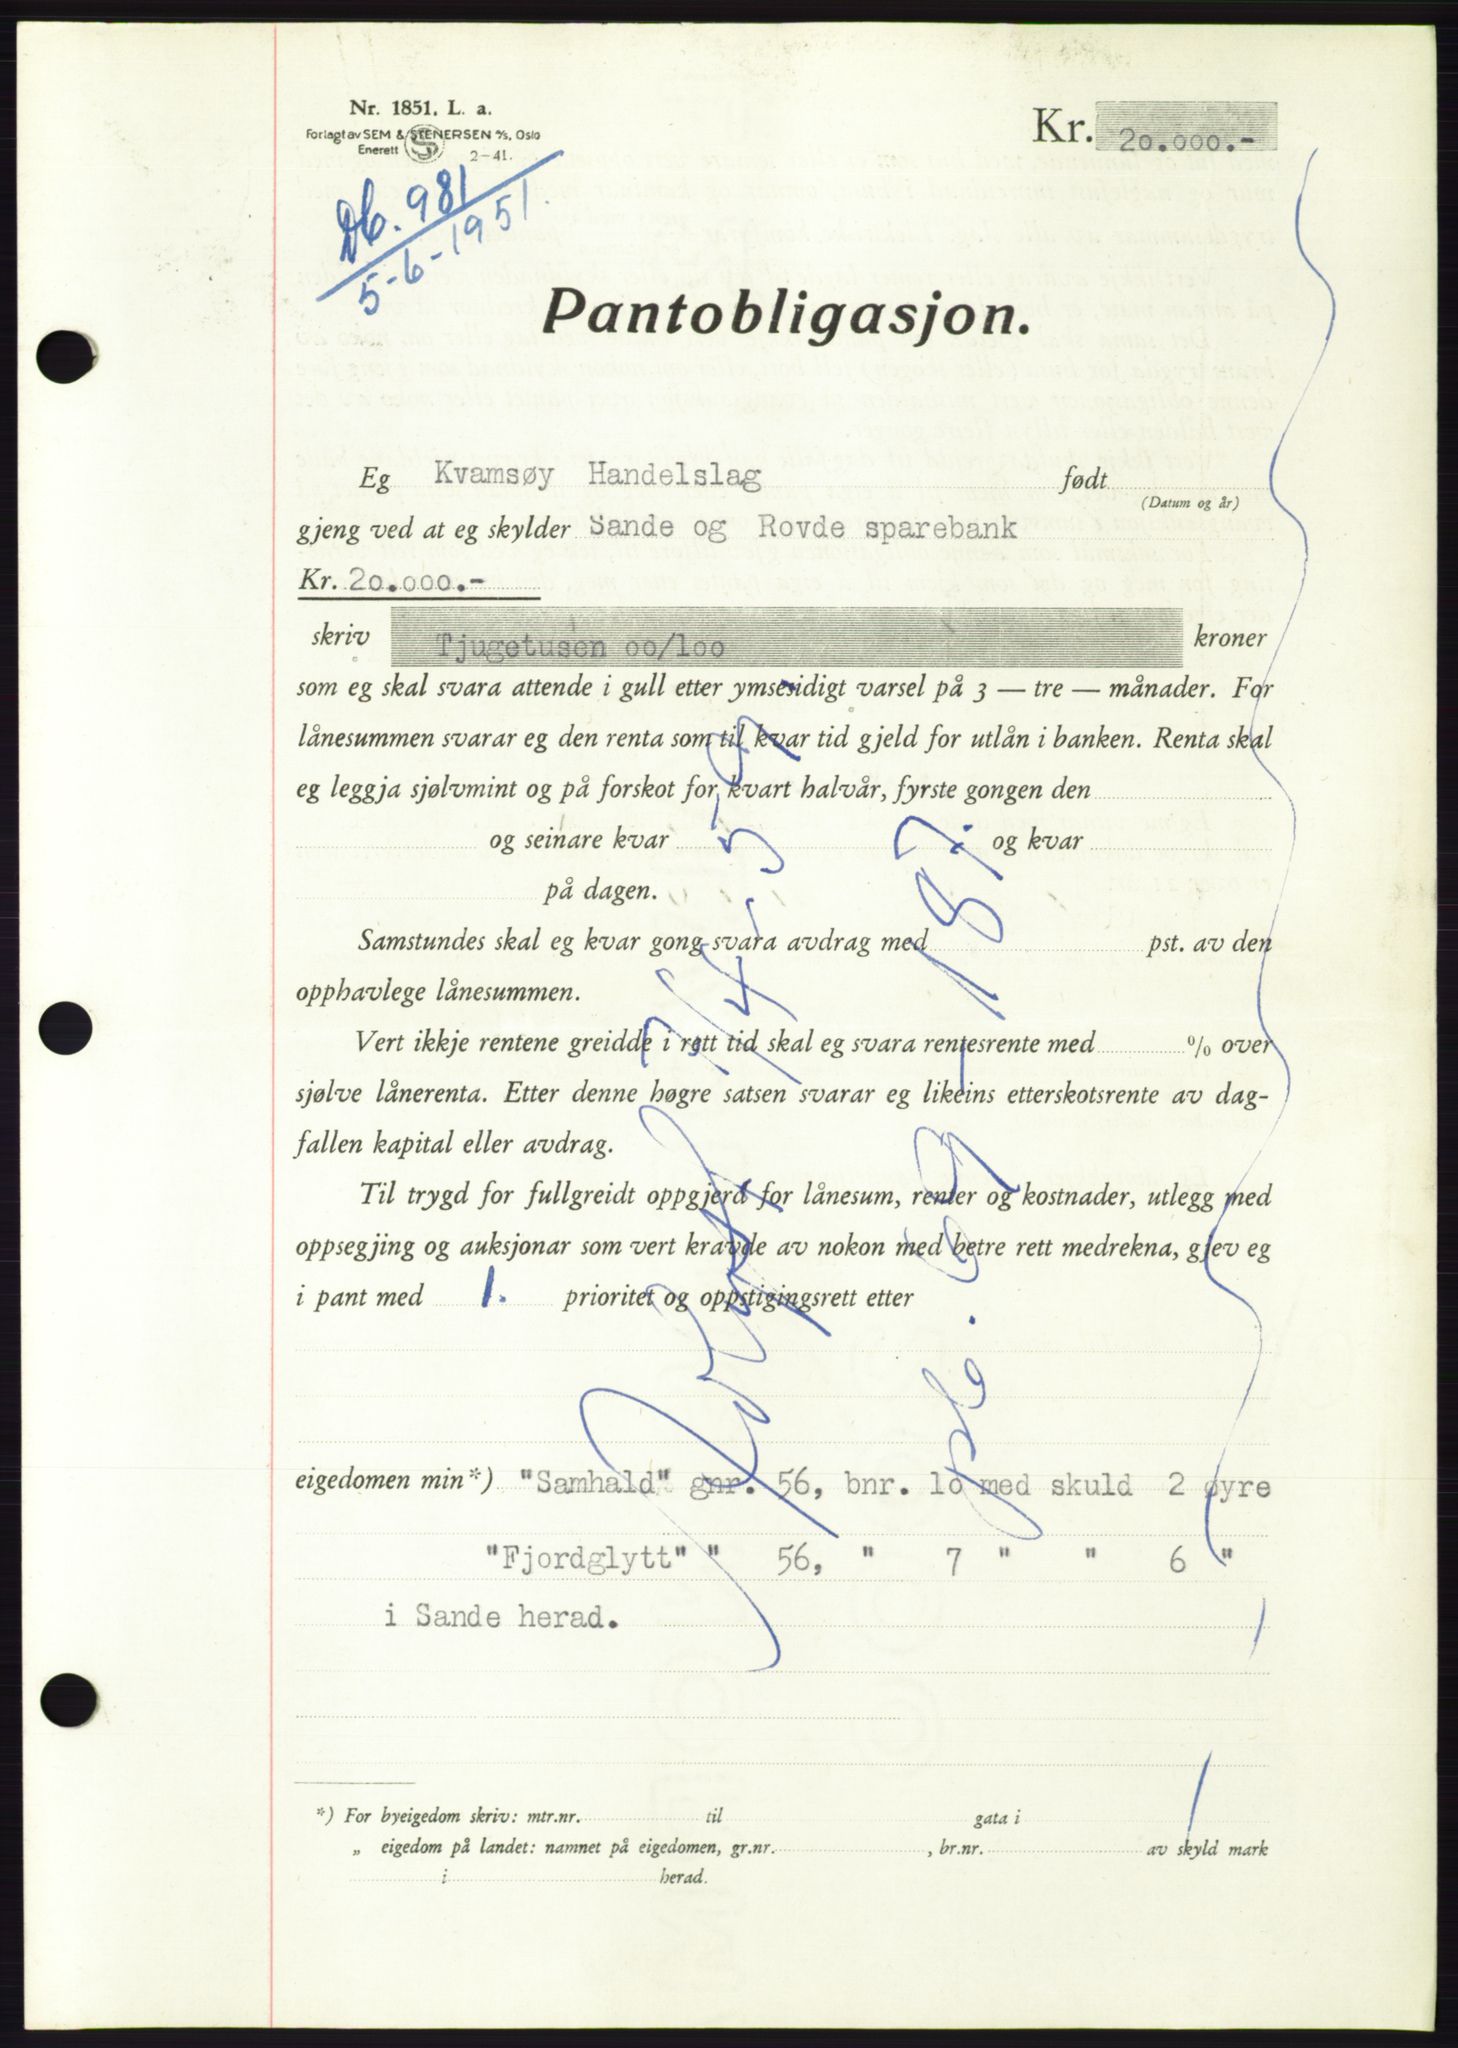 Nr. 1851, L. a.
Forlagt av SEM & STENERSEN A/S, Oslo
Enerett
2-41.
Kr. 20.000.-
Db. 981
5-6-1951.
Pantobligasjon.
Eg Kvamsøy Handelslag født
(Datum og år)
gjeng ved at eg skylder Sande og Rovde sparebank
Kr. 20.000.-
skriv Tjugetusen oo/loo kroner
som eg skal svara attende i gull etter ymsesidigt varsel på 3 — tre — månader. For
lånesummen svarar eg den renta som til kvar tid gjeld for utlån i banken. Renta skal
eg leggja sjølvmint og på forskot for kvart halvår, fyrste gongen den
og seinare kvar og kvar
på dagen.
Samstundes skal eg kvar gong svara avdrag med pst. av den
opphavlege lånesummen.
Vert ikkje rentene greidde i rett tid skal eg svara rentesrente med % over
sjølve lånerenta. Etter denne høgre satsen svarar eg likeins etterskotsrente av dag-
fallen kapital eller avdrag.
Til trygd for fullgreidt oppgjerd for lånesum, renter og kostnader, utlegg med
oppsegjing og auksjonar som vert kravde av nokon med betre rett medrekna, gjev eg
i pant med 1. prioritet og oppstigingsrett etter
eigedomen min*) "Samhald" gnr. 56, bnr. lo med skuld 2 øyre
"Fjordglytt" " 56, " 7 " " 6 "
i Sande herad.
*) For byeigedom skriv: mtr.nr. til gata i
„ eigedom på landet: namnet på eigedomen, gr.nr. , br.nr. av skyld mark
i herad.